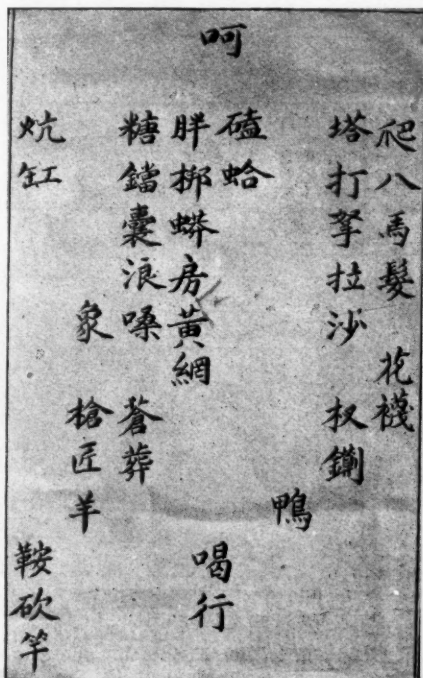 呵
爬八馬髮 花襪
塔打拏拉沙 杈鍘
鴨
磕蛤
喝行
胖梆蟒房黃網
糖鐺囊浪嗓 蒼葬
象
槍匠羊
炕缸 鞍砍竿